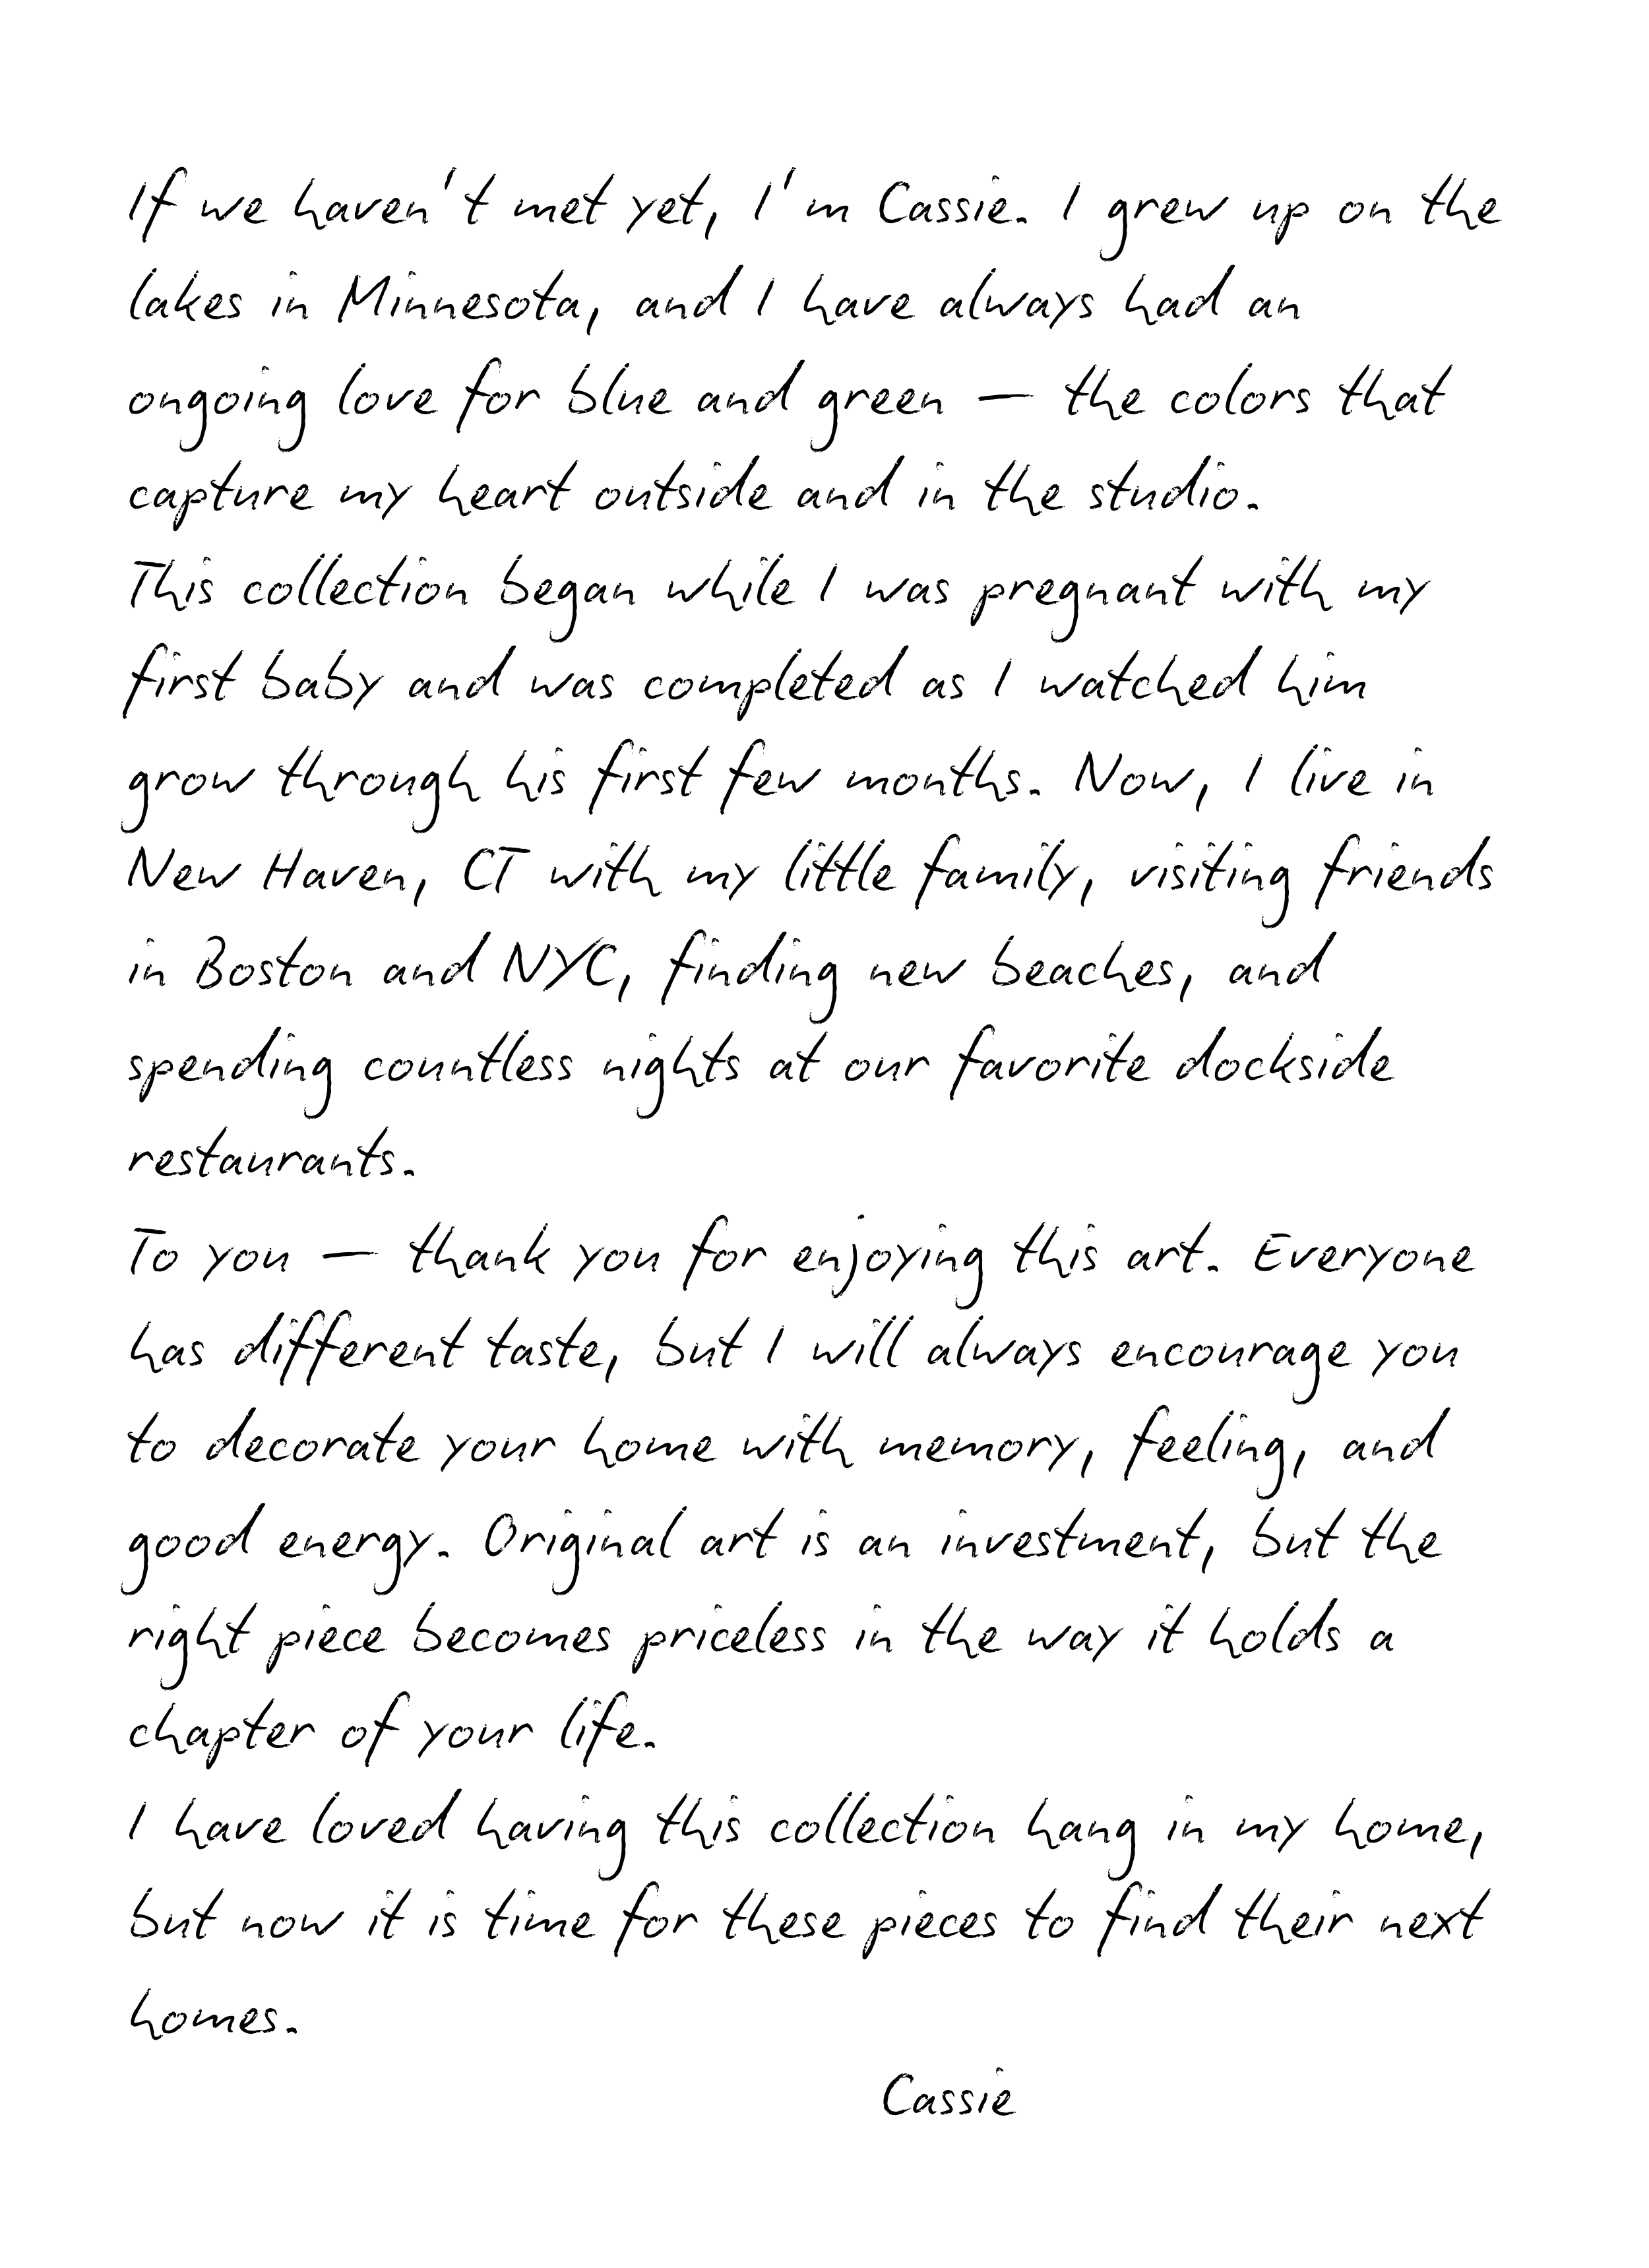 If we haven't met yet, I'm Cassie. I grew up on the
lakes in Minnesota, and I have always had an
ongoing love for blue and green — the colors that
capture my heart outside and in the studio.
This collection began while I was pregnant with my
first baby and was completed as I watched him
grow through his first few months. Now, I live in
New Haven, CT with my little family, visiting friends
in Boston and NYC, finding new beaches, and
spending countless nights at our favorite dockside
restaurants.
To you — thank you for enjoying this art. Everyone
has different taste, but I will always encourage you
to decorate your home with memory, feeling, and
good energy. Original art is an investment, but the
right piece becomes priceless in the way it holds a
chapter of your life.
I have loved having this collection hang in my home,
but now it is time for these pieces to find their next
homes.
Cassie